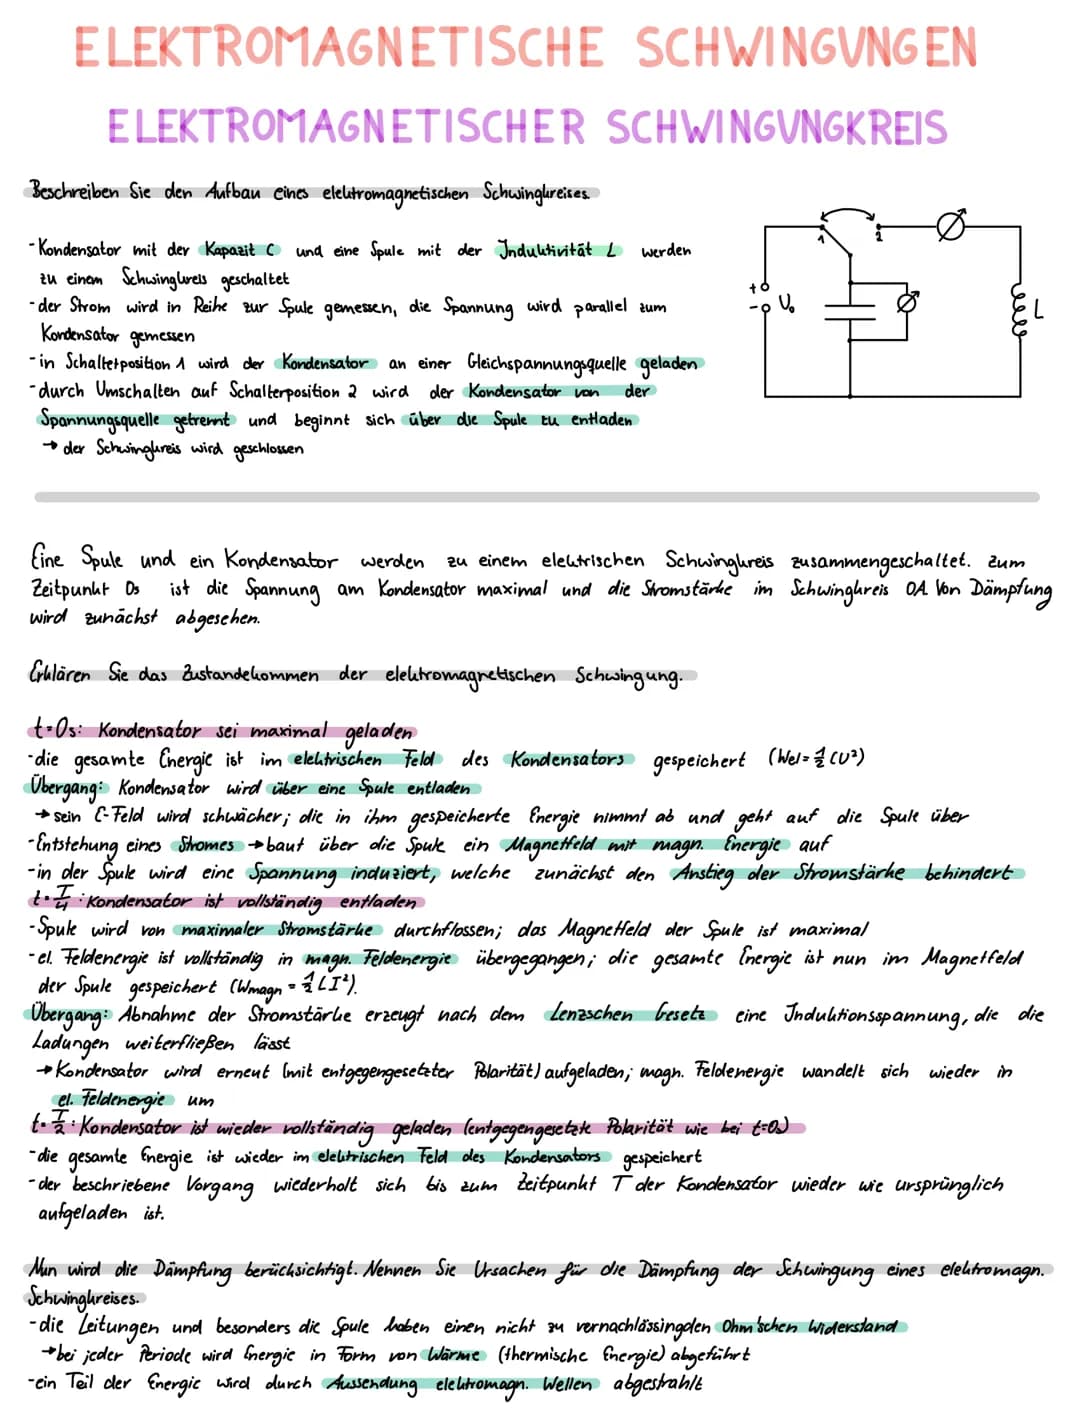 ELEKTROMAGNETISCHE SCHWINGUNGEN
ELEKTROMAGNETISCHER SCHWINGUNGKREIS
Beschreiben Sie den Aufbau eines elektromagnetischen Schwingkreises.
-Kondensator mit der Kapazit C und eine Spule mit der Induktivität L werden
zu einem Schwingkreis geschaltet
-der Strom wird in Reihe zur Spule gemessen, die Spannung wird parallel zum
Kondensator gemessen
-in Schalterposition 1 wird der Kondensator an einer Gleichspannungsquelle geladen
-durch Umschalten auf Schalterposition 2 wird der Kondensator von der
Spannungsquelle getrennt und beginnt sich über die Spule zu entladen
→ der Schwingkreis wird geschlossen
1 2
+
- U₀
L
Eine Spule und ein Kondensator werden zu einem elektrischen Schwingkreis zusammengeschaltet. Zum
Zeitpunkt 0s ist die Spannung am Kondensator maximal und die Stromstärke im Schwingkreis 0A. Von Dämpfung
wird zunächst abgesehen.
Erklären Sie das Zustandekommen der elektromagnetischen Schwingung.
t=0s: Kondensator sei maximal geladen
-die gesamte Energie ist im elektrischen Feld des Kondensators gespeichert (Wel=½CU²)
Übergang: Kondensator wird über eine Spule entladen
→ sein E-Feld wird schwächer; die in ihm gespeicherte Energie nimmt ab und geht auf die Spule über
-Entstehung eines Stromes → baut über die Spule ein Magnetfeld mit magn. Energie auf
-in der Spule wird eine Spannung induziert, welche zunächst den Anstieg der Stromstärke behindert
t=T/4: Kondensator ist vollständig entladen
-Spule wird von maximaler Stromstärke durchflossen; das Magnetfeld der Spule ist maximal
-el. Feldenergie ist vollständig in magn. Feldenergie übergegangen; die gesamte Energie ist nun im Magnetfeld
der Spule gespeichert (Wmagn = ½LI²).
Übergang: Abnahme der Stromstärke erzeugt nach dem Lenzschen Gesetz eine Induktionsspannung, die die
Ladungen weiterfließen lässt
→ Kondensator wird erneut (mit entgegengesetzter Polarität) aufgeladen; magn. Feldenergie wandelt sich wieder in
el. Feldenergie um
t=T/2: Kondensator ist wieder vollständig geladen (entgegengesetzte Polarität wie bei t=0s)
-die gesamte Energie ist wieder im elektrischen Feld des Kondensators gespeichert
-der beschriebene Vorgang wiederholt sich bis zum Zeitpunkt T der Kondensator wieder wie ursprünglich
aufgeladen ist.
Nun wird die Dämpfung berücksichtigt. Nennen Sie Ursachen für die Dämpfung der Schwingung eines elektromagn.
Schwingkreises.
-die Leitungen und besonders die Spule haben einen nicht zu vernachlässingden Ohm'schen Widerstand
→ bei jeder Periode wird Energie in Form von Wärme (thermische Energie) abgeführt
-ein Teil der Energie wird durch Aussendung elektromagn. Wellen abgestrahlt